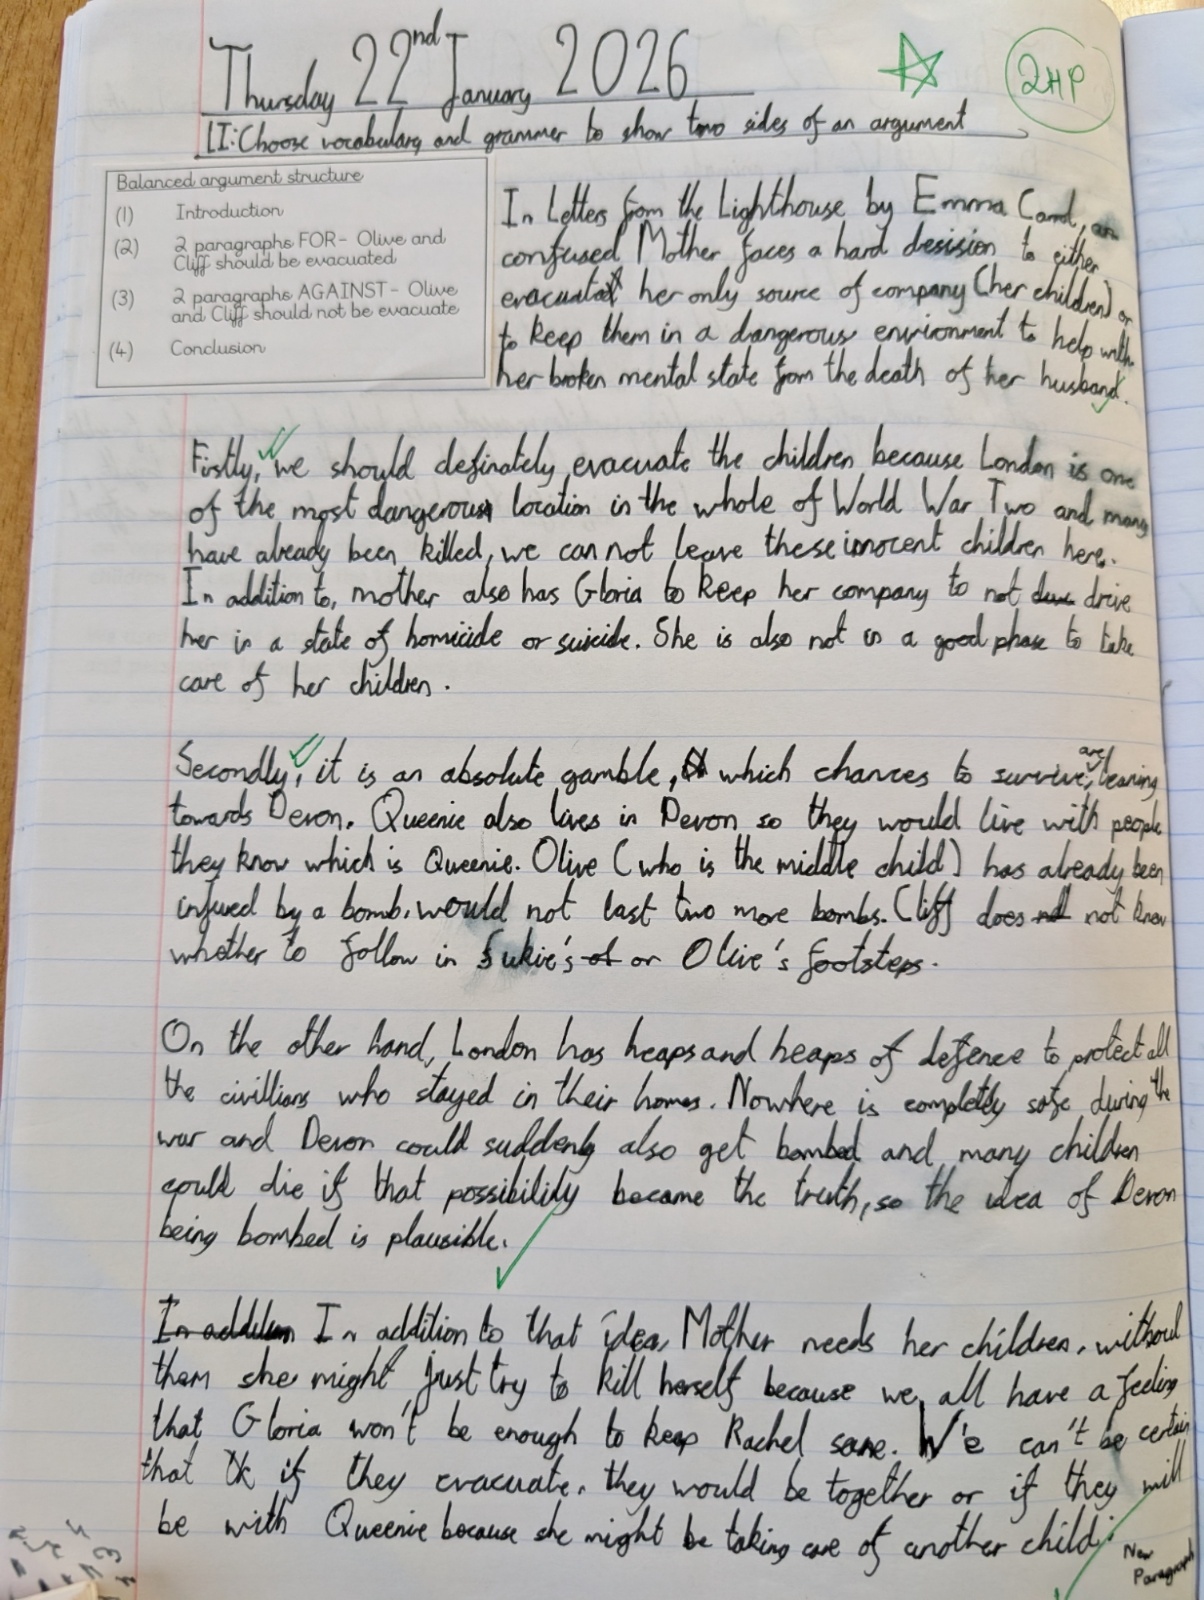 Thursday 22nd January 2026
2HP
LI: Choose vocabulary and grammer to show two sides of an argument
Balanced argument structure
(1) Introduction
(2) 2 paragraphs FOR- Olive and
Cliff should be evacuated
(3) 2 paragraphs AGAINST- Olive
and Cliff should not be evacuate
(4) Conclusion
In Letters from the Lighthouse by Emma Carrol, a
confused Mother faces a hard desision to either
evacuate her only source of company (her children) or
to keep them in a dangerous environment to help with
her broken mental state from the death of her husband.
Firstly, we should definately evacuate the children because London is one
of the most dangerous location in the whole of World War Two and many
have already been killed, we can not leave these innocent children here.
In addition to, mother also has Gloria to keep her company to not drive
her in a state of homicide or suicide. She is also not in a good phase to take
care of her children.
Secondly, it is an absolute gamble, which chances to survive, are leaning
towards Devon. Queenie also lives in Devon so they would live with people
they know which is Queenie. Olive (who is the middle child) has already been
injured by a bomb, would not last two more bombs. Cliff does not know
whether to follow in Sukie's or Olive's footsteps.
On the other hand, London has heaps and heaps of defence to protect all
the civillians who stayed in their homes. Nowhere is completly safe during the
war and Devon could suddenly also get bombed and many children
could die if that possibility became the truth, so the idea of Devon
being bombed is plausible.
In addition In addition to that idea, Mother needs her children, without
them she might just try to kill herself because we all have a feeling
that Gloria won't be enough to keep Rachel sane. We can't be certain
that if they evacuate, they would be together or if they will
be with Queenie because she might be taking care of another child.
New
Paragraph